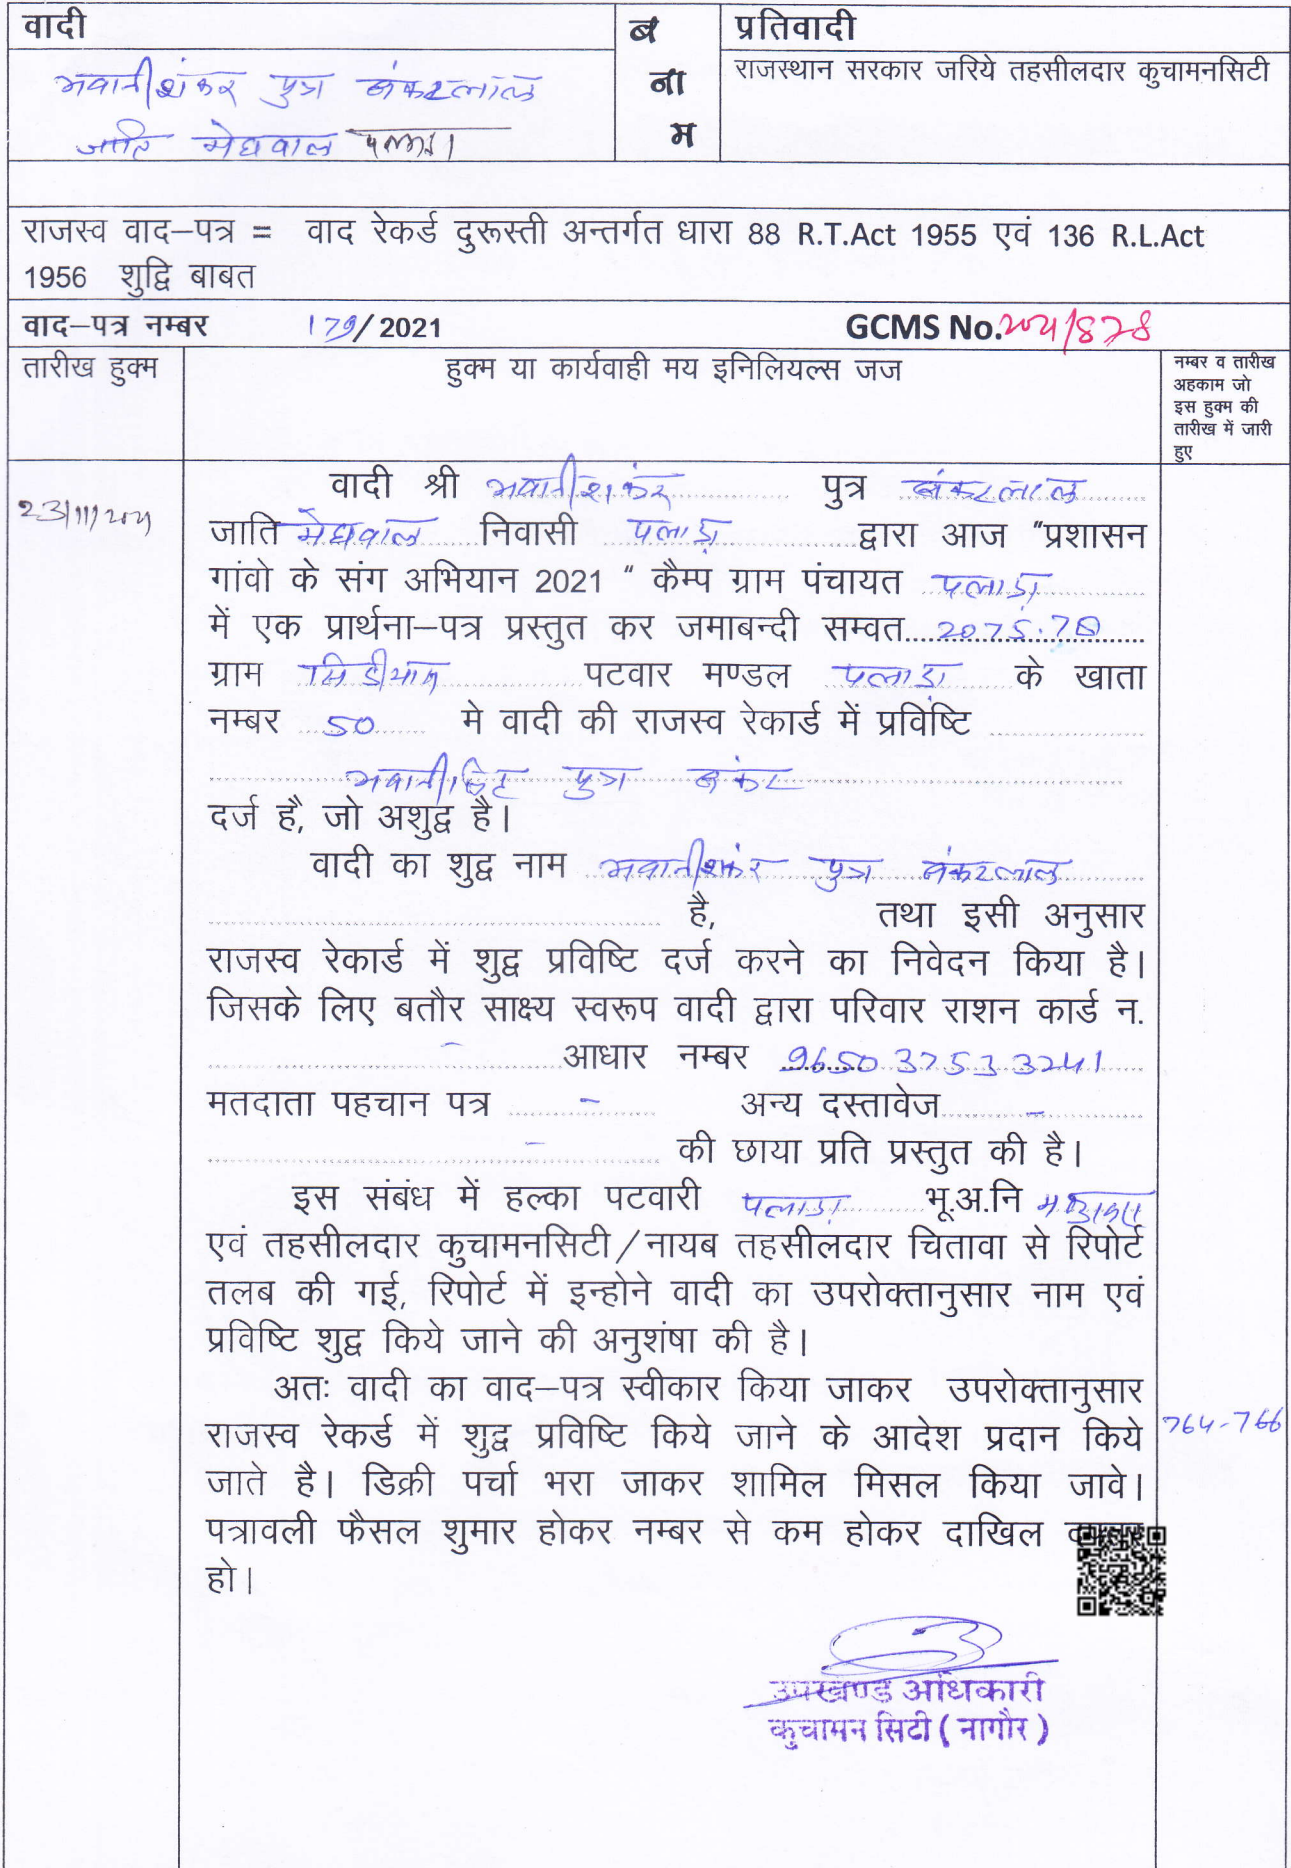 वादी
ब
ना
म
प्रतिवादी
भवानीशंकर पुत्र बंकटलाल
जाति मेघवाल पलाडा
राजस्थान सरकार जरिये तहसीलदार कुचामनसिटी
राजस्व वाद–पत्र = वाद रेकर्ड दुरूस्ती अन्तर्गत धारा 88 R.T.Act 1955 एवं 136 R.L.Act
1956 शुद्वि बाबत
वाद–पत्र नम्बर 179/2021 GCMS No.2021/878
तारीख हुक्म
हुक्म या कार्यवाही मय इनिलियल्स जज
नम्बर व तारीख
अहकाम जो
इस हुक्म की
तारीख में जारी
हुए
23/11/2021
वादी श्री भवानीशकंर पुत्र बंकटलाल
जाति मेघवाल निवासी पलाड़ा द्वारा आज "प्रशासन
गांवो के संग अभियान 2021 " कैम्प ग्राम पंचायत पलाडा
में एक प्रार्थना–पत्र प्रस्तुत कर जमाबन्दी सम्वत 2075.78
ग्राम पटवार मण्डल पलाडा के खाता
नम्बर 50 मे वादी की राजस्व रेकार्ड में प्रविष्टि
भवानीसिंह पुत्र बंकट
दर्ज है, जो अशुद्व है।
वादी का शुद्व नाम भवानीशकंर पुत्र बंकटलाल
है, तथा इसी अनुसार
राजस्व रेकार्ड में शुद्व प्रविष्टि दर्ज करने का निवेदन किया है।
जिसके लिए बतौर साक्ष्य स्वरूप वादी द्वारा परिवार राशन कार्ड न.
- आधार नम्बर 9650 3753 3241
मतदाता पहचान पत्र - अन्य दस्तावेज -
- की छाया प्रति प्रस्तुत की है।
इस संबंध में हल्का पटवारी पलाडा भू.अ.नि
एवं तहसीलदार कुचामनसिटी/नायब तहसीलदार चितावा से रिपोर्ट
तलब की गई, रिपोर्ट में इन्होने वादी का उपरोक्तानुसार नाम एवं
प्रविष्टि शुद्व किये जाने की अनुशंषा की है।
अतः वादी का वाद–पत्र स्वीकार किया जाकर उपरोक्तानुसार
राजस्व रेकर्ड में शुद्व प्रविष्टि किये जाने के आदेश प्रदान किये
764-766
जाते है। डिक्री पर्चा भरा जाकर शामिल मिसल किया जावे।
पत्रावली फैसल शुमार होकर नम्बर से कम होकर दाखिल
हो।
उपखण्ड अधिकारी
कुचामन सिटी ( नागौर )